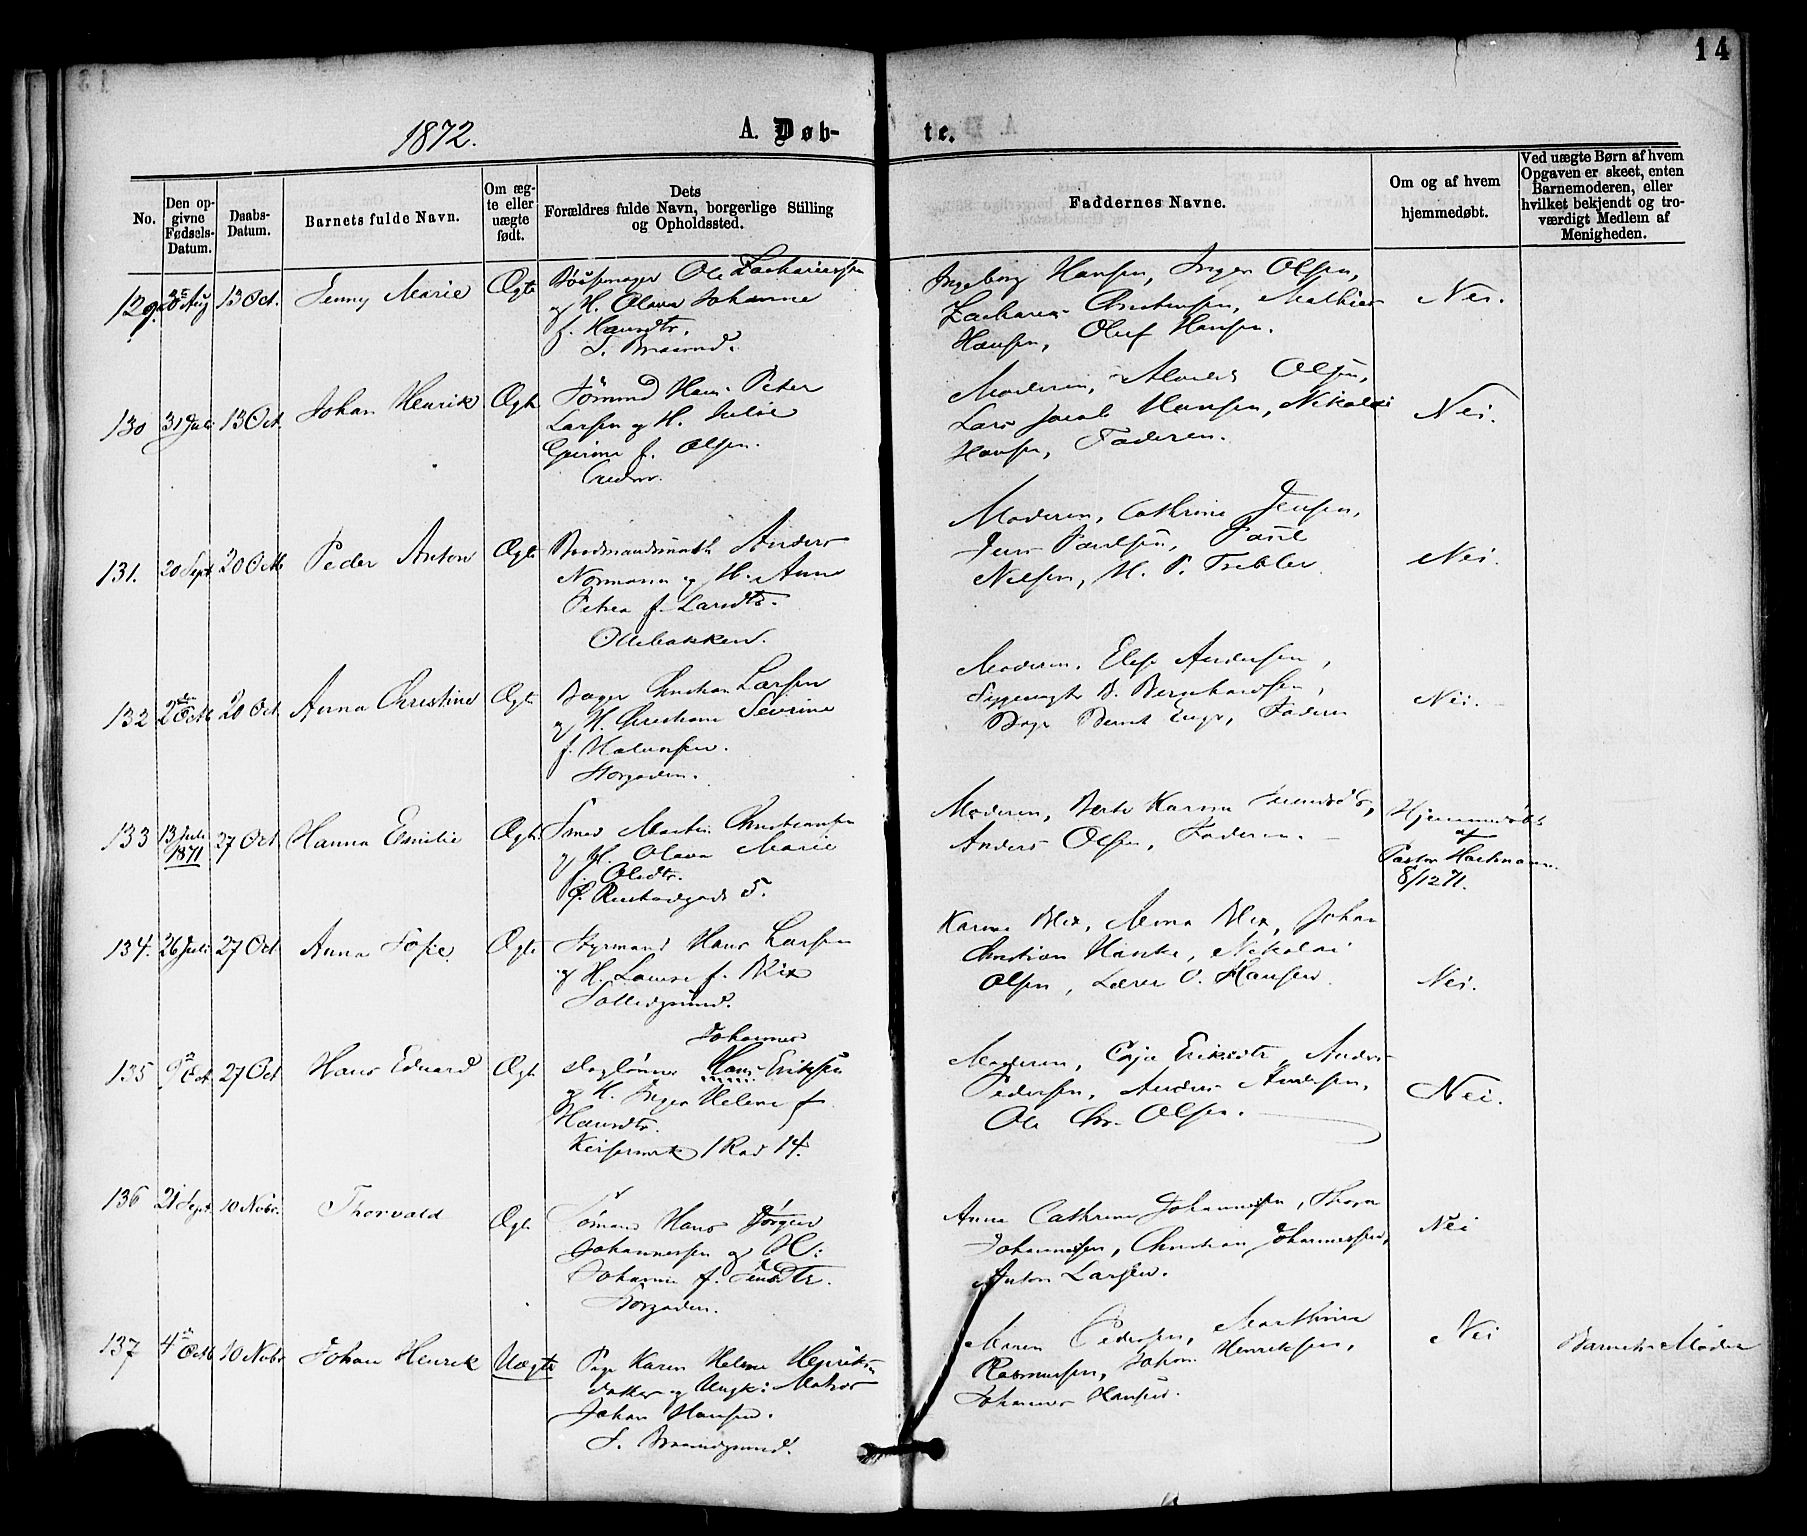 14
1872.
A. Døb-
te.
No.
Den op-
givne
Fødsels-
Datum.
Daabs-
Datum.
Barnets fulde Navn.
Om æg-
te eller
uægte
født.
Dets
Forældres fulde Navn, borgerlige Stilling
og Opholdssted.
Faddernes Navne.
Om og af hvem
hjemmedøbt.
Ved uægte Børn af hvem
Opgaven er skeet, enten
Barnemoderen, eller
hvilket bekjendt og tro-
værdigt Medlem af
Menigheden.
129. Aug 13 Oct. Jenny Marie Ægte
Ole Zachariassen
og H. Olava Johanne
f. Hansdtr.
Ingeborg Hansen, Inger Olsen,
Zacharias Christensen, Mathias
Hansen, Oluf Hansen.
Nei.
130 31 Juli 13 Oct. Johan Henrik Ægte
Sømand Hans Peter
Larsen og H. Julie
f. Olsen.
Moderen, Olsen,
Lars Jacob Hansen, Nikolai
Hansen, Faderen.
Nei.
131. 20 Sept. 20 Octb Peder Anton Ægte
Anders
Normann og H. Anne
Petrea f. Larsdtr.
Ollebakken.
Moderen, Cathrine Jensen,
Jens Paulsen, Paul
Nilsen, H. P. Trebler.
Nei.
132 2den Octb 20 Oct Anna Christine Ægte
Bager Christian Larsen
og H. Christiane Severine
f. Halvorsen.
Storgaden.
Moderen, Elise Andersen,
B. Bernhardsen,
Bager Bernt Faderen
Nei.
133 13 Juli
1871 27 Oct. Hanna Emilie Ægte
Smed Martin Christiansen
og H. Olava Marie
f. Olsdtr.
5.
Moderen, Berte Karine
Anders Olsen, Faderen.
Hjemmedøbt
af
Pastor Hartmann.
8/12 71.
134. 26 Juli 27 Oct Anna Sofie Ægte
Styrmand Hans Larsen
og H. Louise f. Blix
Karen Blix, Anna Blix, Johan
Christian Hanke, Nikolai
Olsen, Lærer O. Hansen.
Nei.
135 9de Oct. 27 Oct Hans Edvard Ægte
Johannes
Daglønner Hans Eriksen
og H. Inger Helene f.
Hansdtr.
1 Rad 14.
Moderen, Eriksdtr, Anders
Pedersen, Anders Andersen,
Ole Chr. Olsen.
Nei.
136 21 Sept. 10 Novbr. Thorvald Ægte
Sømand Hans Jørgen
Johannessen og H.
Johanne f. Jensdtr.
Storgaden.
Anne Cathrine Johannessen, Thora
Johannessen, Christian Johannessen,
Anton Larsen.
Nei
137 4de Octb 10 Novbr Johan Henrik Uægte
Pige Karen Helene Henriks-
datter og Ungk: Matros
Johan Hansen.
Maren Pedersen, Marthine
Rasmussen, Johan Henriksen,
Johannes Hansen.
Nei
Barnets Moder